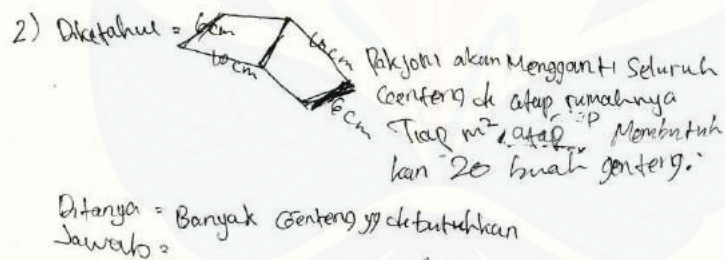 2) Diketahui = 6 cm
10 cm
10 cm
6 cm
Pak joni akan Mengganti Seluruh
Genteng di atap rumahnya
Tiap m² atap Membutuh
kan 20 buah genteng.
Ditanya = Banyak Genteng yg dibutuhkan
Jawab =